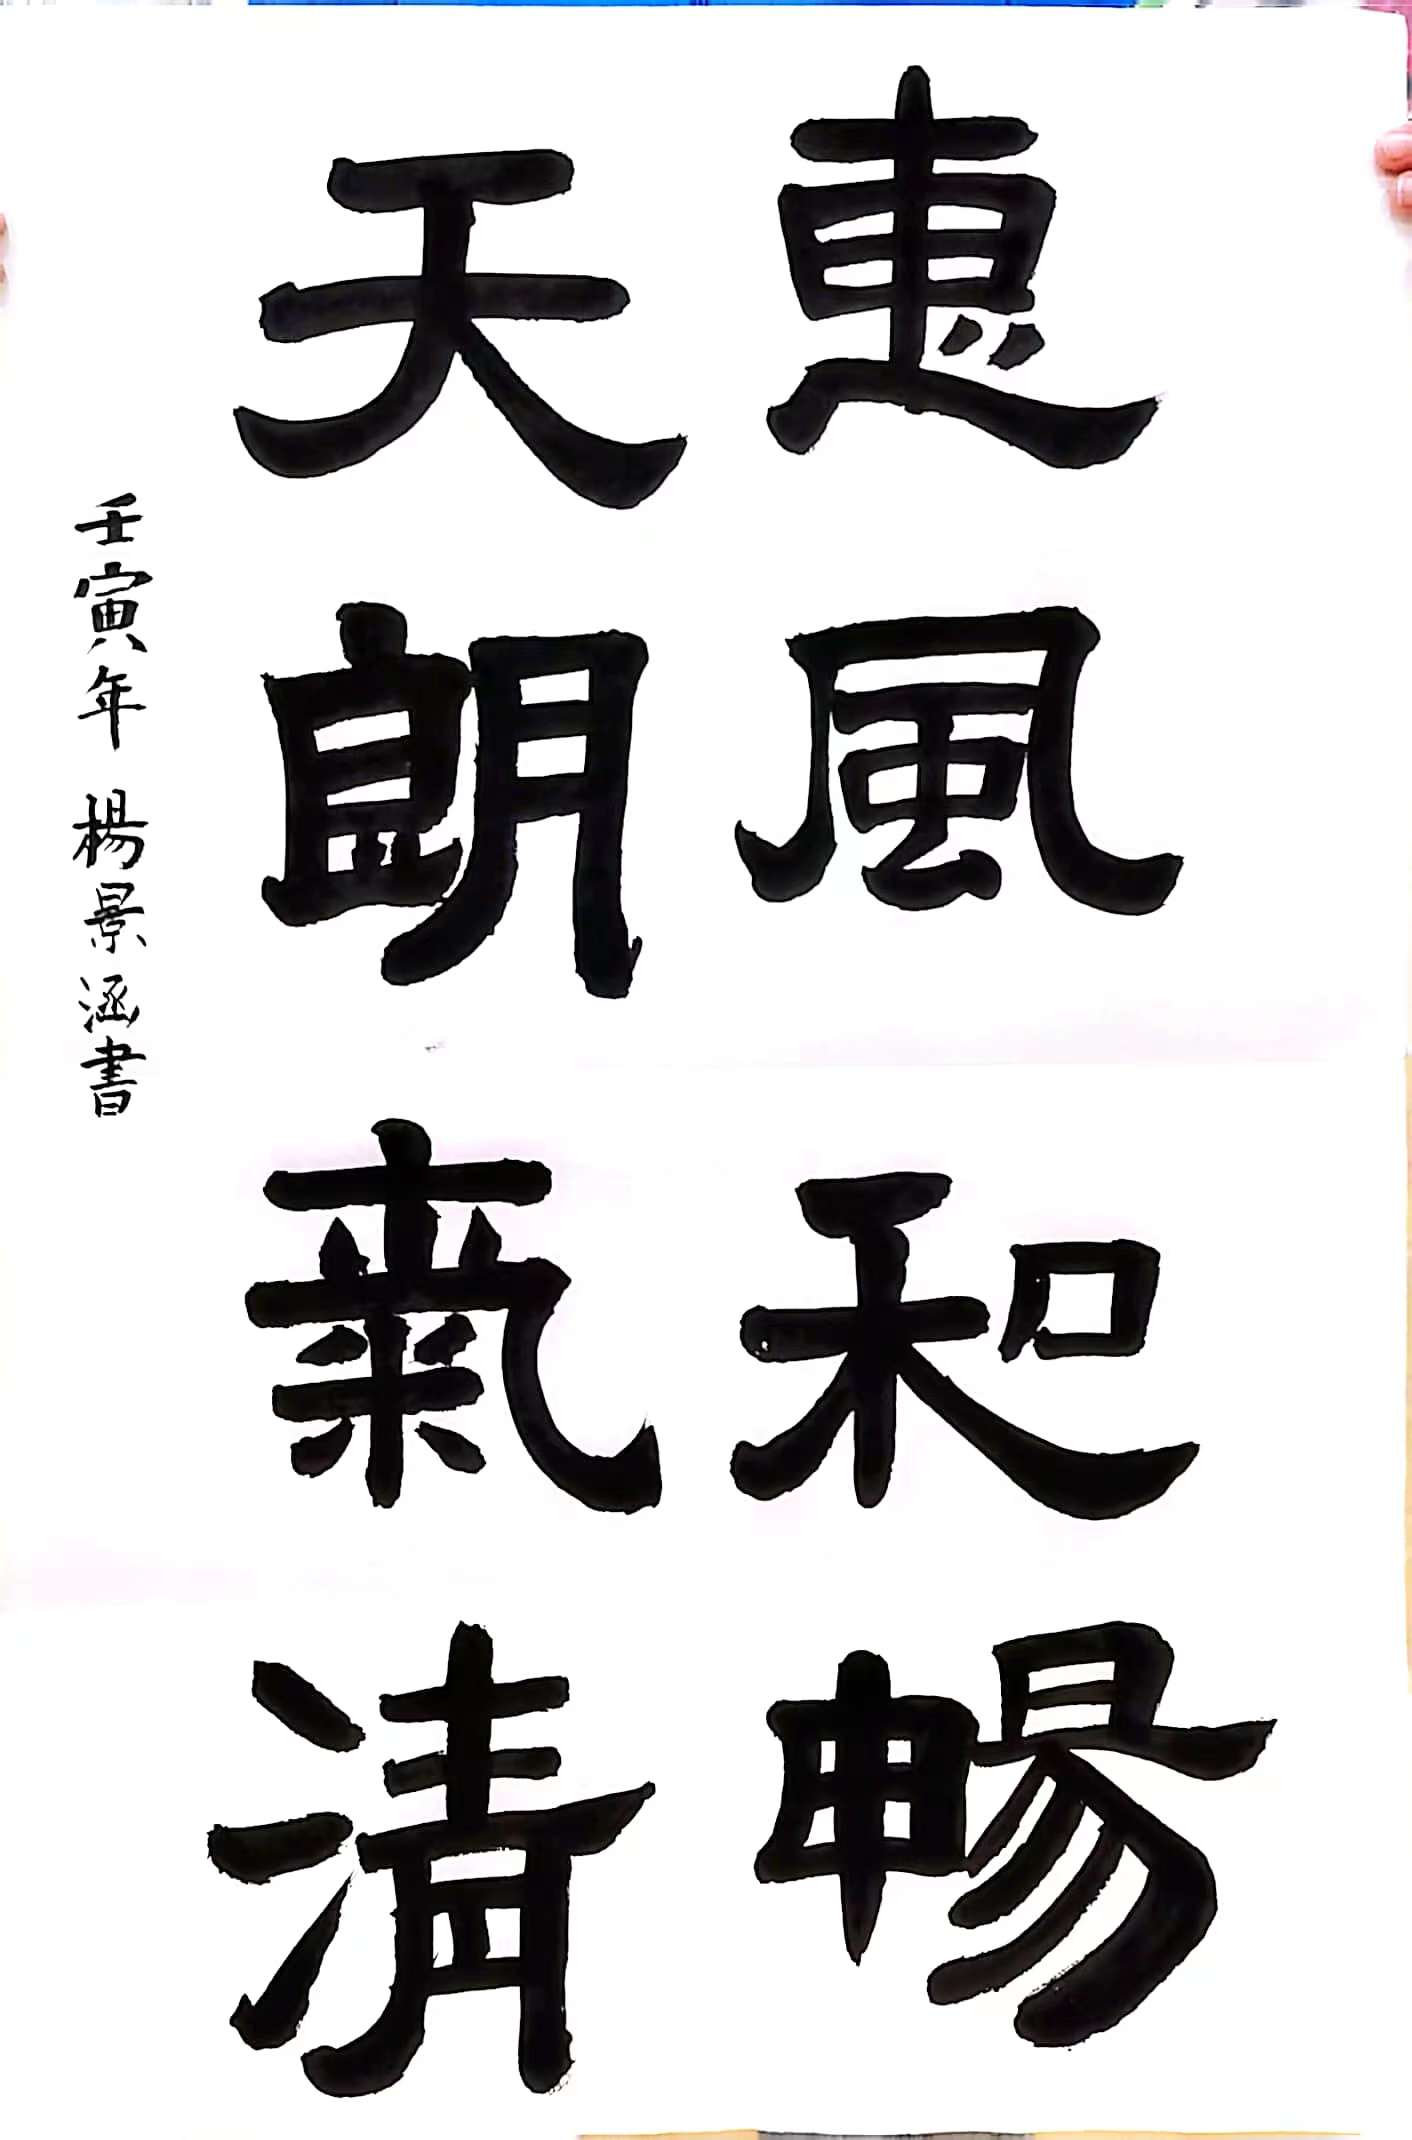 惠風和暢
天朗氣清
壬寅年 楊景涵書